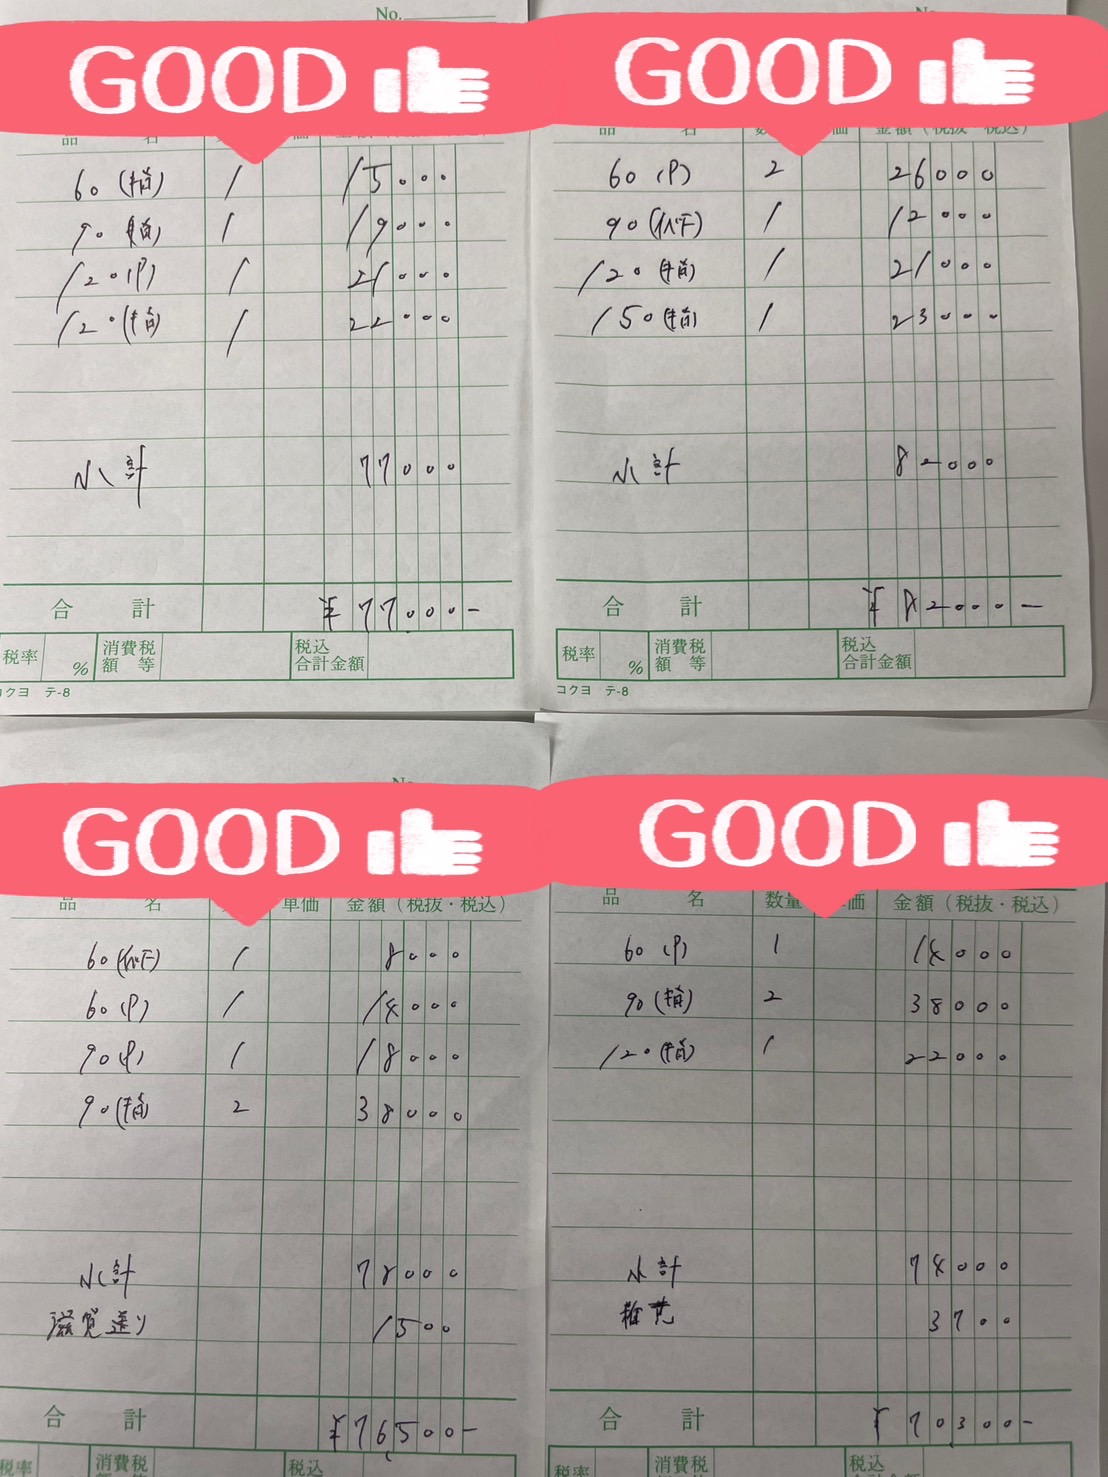 No.
GOOD
品 名 価
60 (指) 1 15000
90 (指) 1 19000
120 (P) 1 21000
120 (指) 1 22000
小計 77000
合計 ¥77000-
税率 % 消費税額等 税込合計金額
コクヨ テ-8
GOOD
品 名 数 価 金額(税抜・税込)
60 (P) 2 26000
90 1 12000
120 (指) 1 21000
150 (指) 1 23000
小計 82000
合計 ¥82000-
税率 % 消費税額等 税込合計金額
コクヨ テ-8
GOOD
品 名 単価 金額(税抜・税込)
60 1 8000
60 (P) 1 14000
90 (P) 1 18000
90 (指) 2 38000
小計 78000
送り 1500
合計 ¥76500-
税率 消費税 税込
GOOD
品 名 数量 価 金額(税抜・税込)
60 (P) 1 14000
90 (指) 2 38000
120 (指) 1 22000
小計 74000
雑費 3700
合計 ¥70300-
税率 消費税 税込